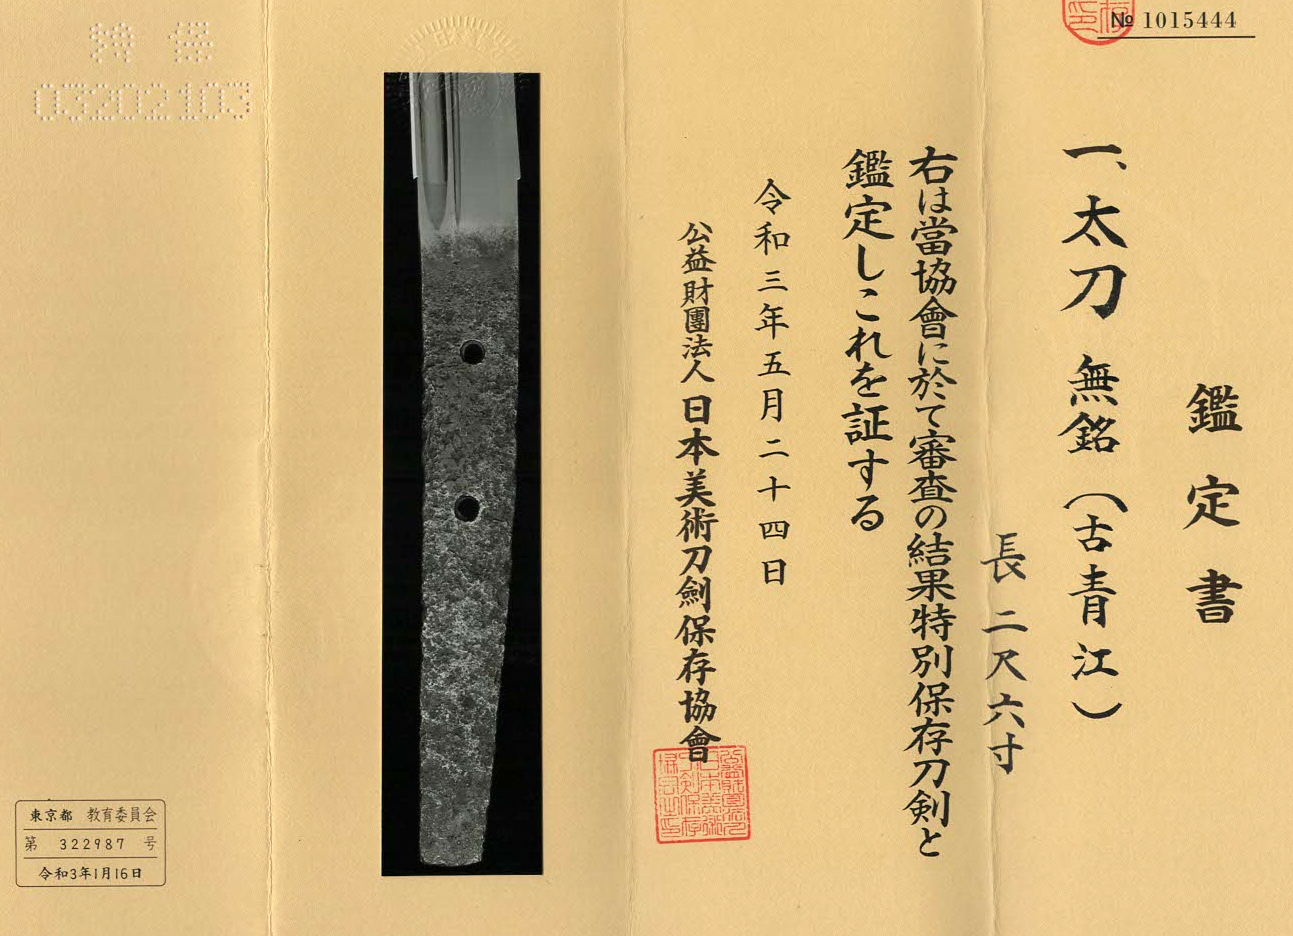 № 1015444
鑑定書
一、太刀 無銘(古青江)
長二尺六寸
右は當協會に於て審査の結果特別保存刀剣と
鑑定しこれを証する
令和三年五月二十四日
公益財團法人日本美術刀劍保存協會
特保
03202103
東京都 教育委員会
第 322987 号
令和3年1月16日